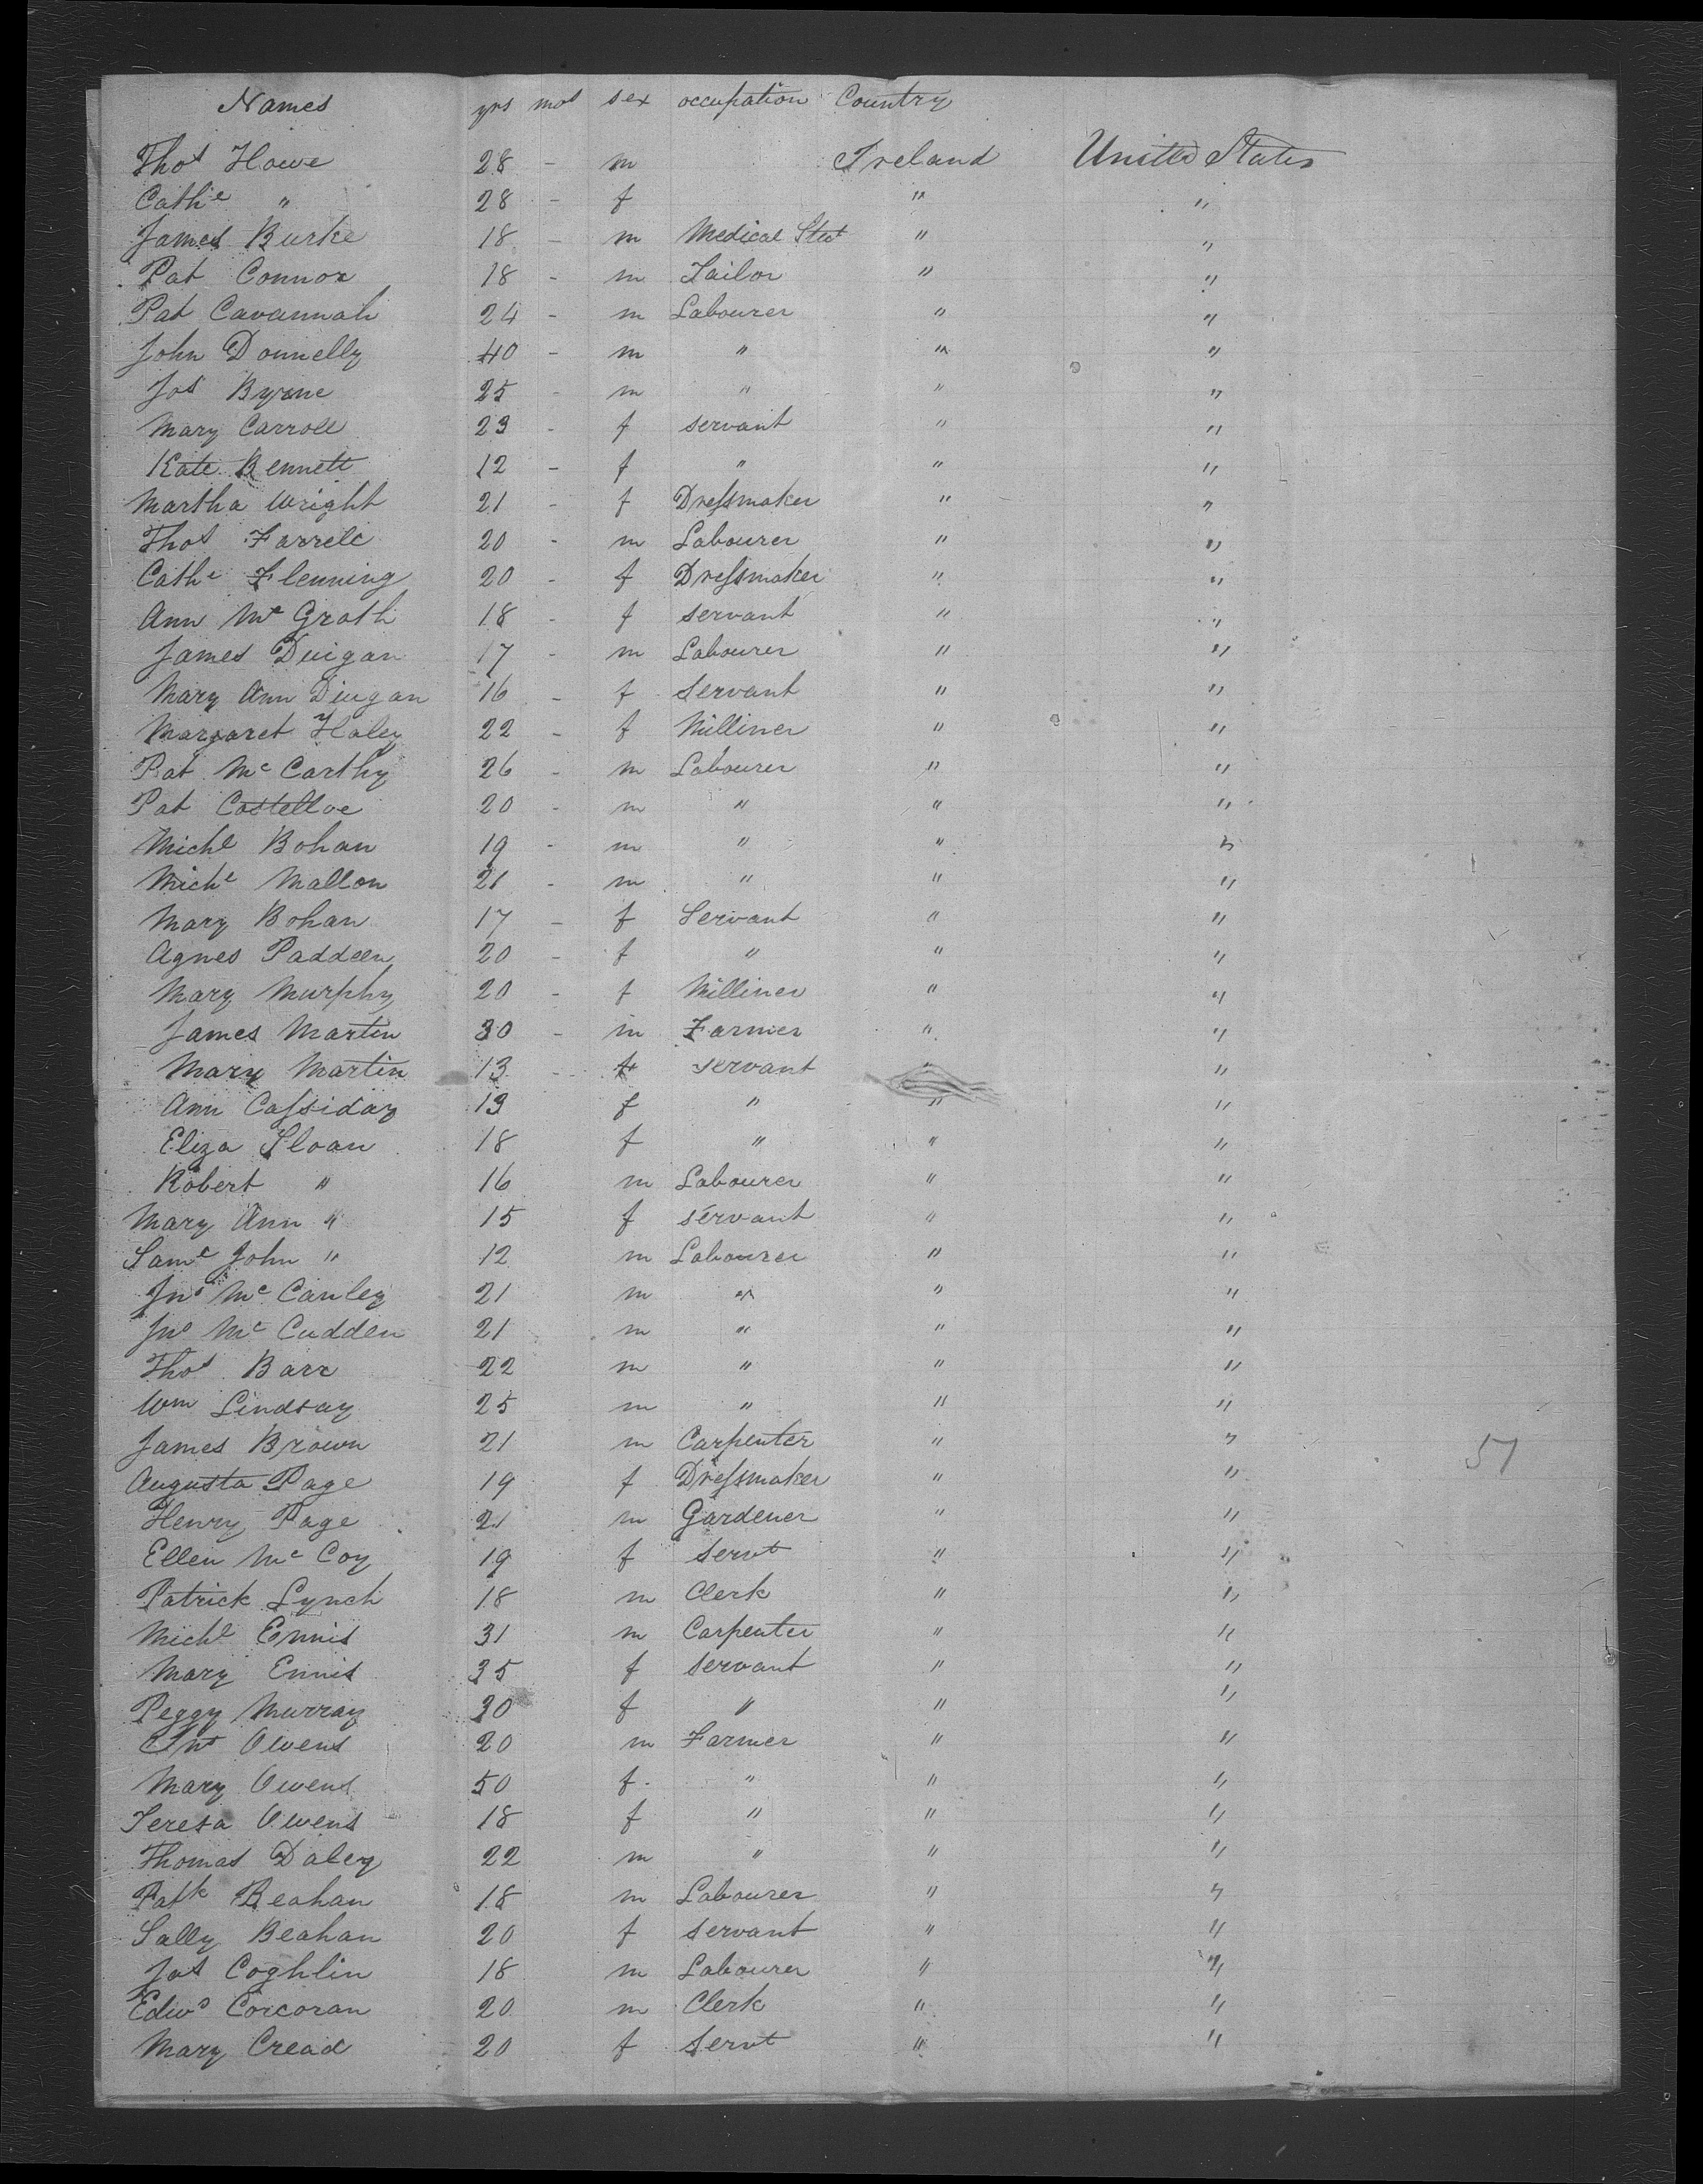 Names yrs mos sex occupation Country
Thos Howe 28 - m Ireland United States
Cathe " 28 - f " "
James Burke 18 - m Medical Stdt " "
Pat Connor 18 - m Tailor " "
Pat Cavannah 24 - m Labourer " "
John Donnelly 40 - m " " "
Jos Byrne 25 - m " " "
Mary Carroll 23 - f servant " "
Kate Bennett 12 - f " " "
Martha Wright 21 - f Dressmaker " "
Thos Farrell 20 - m Labourer " "
Cathe Flenning 20 - f Dressmaker " "
Ann Mc Grath 18 - f servant " "
James Duigan 17 - m Labourer " "
Mary Ann Diugan 16 - f Servant " "
Margaret Haley 22 - f Milliner " "
Pat Mc Carthy 26 - m Labourer " "
Pat Costelloe 20 - m " " "
Michl Bohan 19 - m " " "
Michl Mallon 21 - m " " "
Mary Bohan 17 - f Servant " "
Agnes Paddeen 20 - f " " "
Mary Murphy 20 - f Milliner " "
James Martin 30 - m Farmer " "
Mary Martin 13 - f servant " "
Ann Cassiday 19 f " " "
Eliza Sloan 18 f " " "
Robert " 16 m Labourer " "
Mary Ann " 15 f servant " "
Saml John " 12 m Labourer " "
Jno Mc Cauley 21 m " " "
Jno Mc Cudden 21 m " " "
Thos Barr 22 m " " "
Wm Lindsay 25 m " " "
James Brown 21 m Carpenter " " 51
Augusta Page 19 f Dressmaker " "
Henry Page 21 m Gardener " "
Ellen Mc Coy 19 f Servt " "
Patrick Lynch 18 m Clerk " "
Michl Ennis 31 m Carpenter " "
Mary Ennis 35 f servant " "
Peggy Murray 30 f " " "
Owens 20 m Farmer " "
Mary Owens 50 f " " "
Teresa Owens 18 f " " "
Thomas Daley 22 m " " "
Patk Beahan 18 m Labourer " "
Sally Beahan 20 f servant " "
Jas Coghlin 18 m Labourer " "
Edwd Corcoran 20 m Clerk " "
Mary Cread 20 f Servt " "